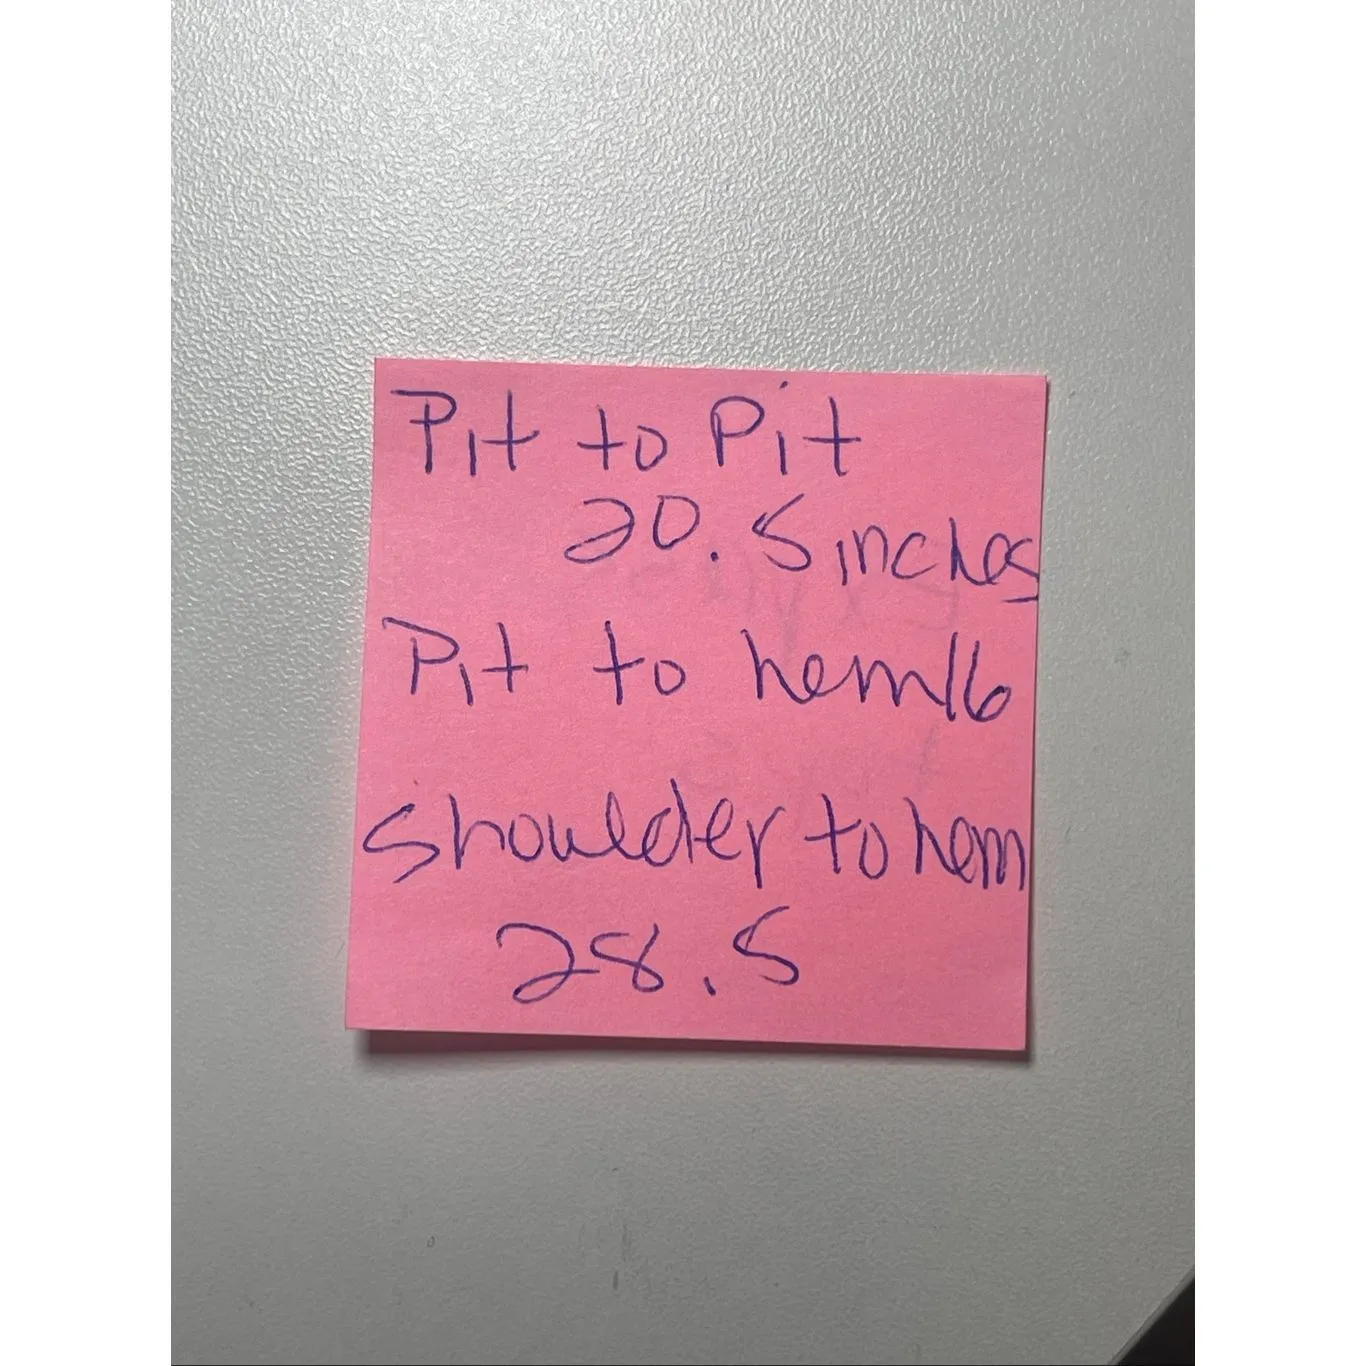 Pit to Pit
20.5 inches
Pit to hem 16
shoulder to hem
28.5